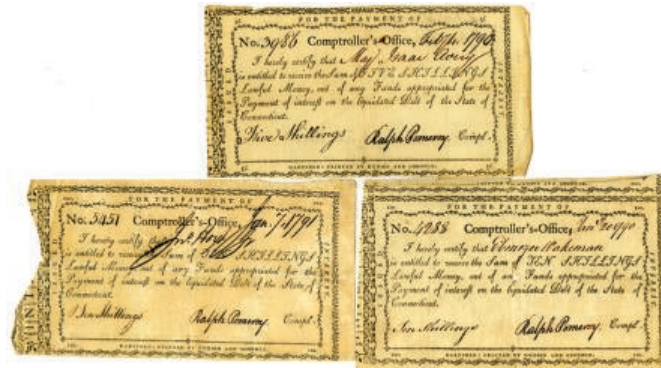 FOR THE PAYMENT OF
No. 3986 Comptroller's-Office, Feb. 1790
I hereby certify that Maj Isaac Avery
is entitled to receive the Sum of FIVE SHILLINGS
Lawful Money, out of any Funds appropriated for the
Payment of interest on the liquidated Debt of the State of
Connecticut.
Five Shillings Ralph Pomeroy Compt.
HARTFORD: PRINTED BY HUDSON AND GOODWIN.
FOR THE PAYMENT OF
No. 5451 Comptroller's-Office, Jan. 7 1791
I hereby certify that
is entitled to receive the Sum of TEN SHILLINGS
Lawful Money, out of any Funds appropriated for the
Payment of interest on the liquidated Debt of the State of
Connecticut.
Ten Shillings Ralph Pomeroy Compt.
HARTFORD: PRINTED BY HUDSON AND GOODWIN.
FOR THE PAYMENT OF
No. 4288 Comptroller's-Office, 1790
I hereby certify that Ebenezer Wakeman
is entitled to receive the Sum of TEN SHILLINGS
Lawful Money, out of any Funds appropriated for the
Payment of interest on the liquidated Debt of the State of
Connecticut.
Ten Shillings Ralph Pomeroy Compt.
HARTFORD: PRINTED BY HUDSON AND GOODWIN.